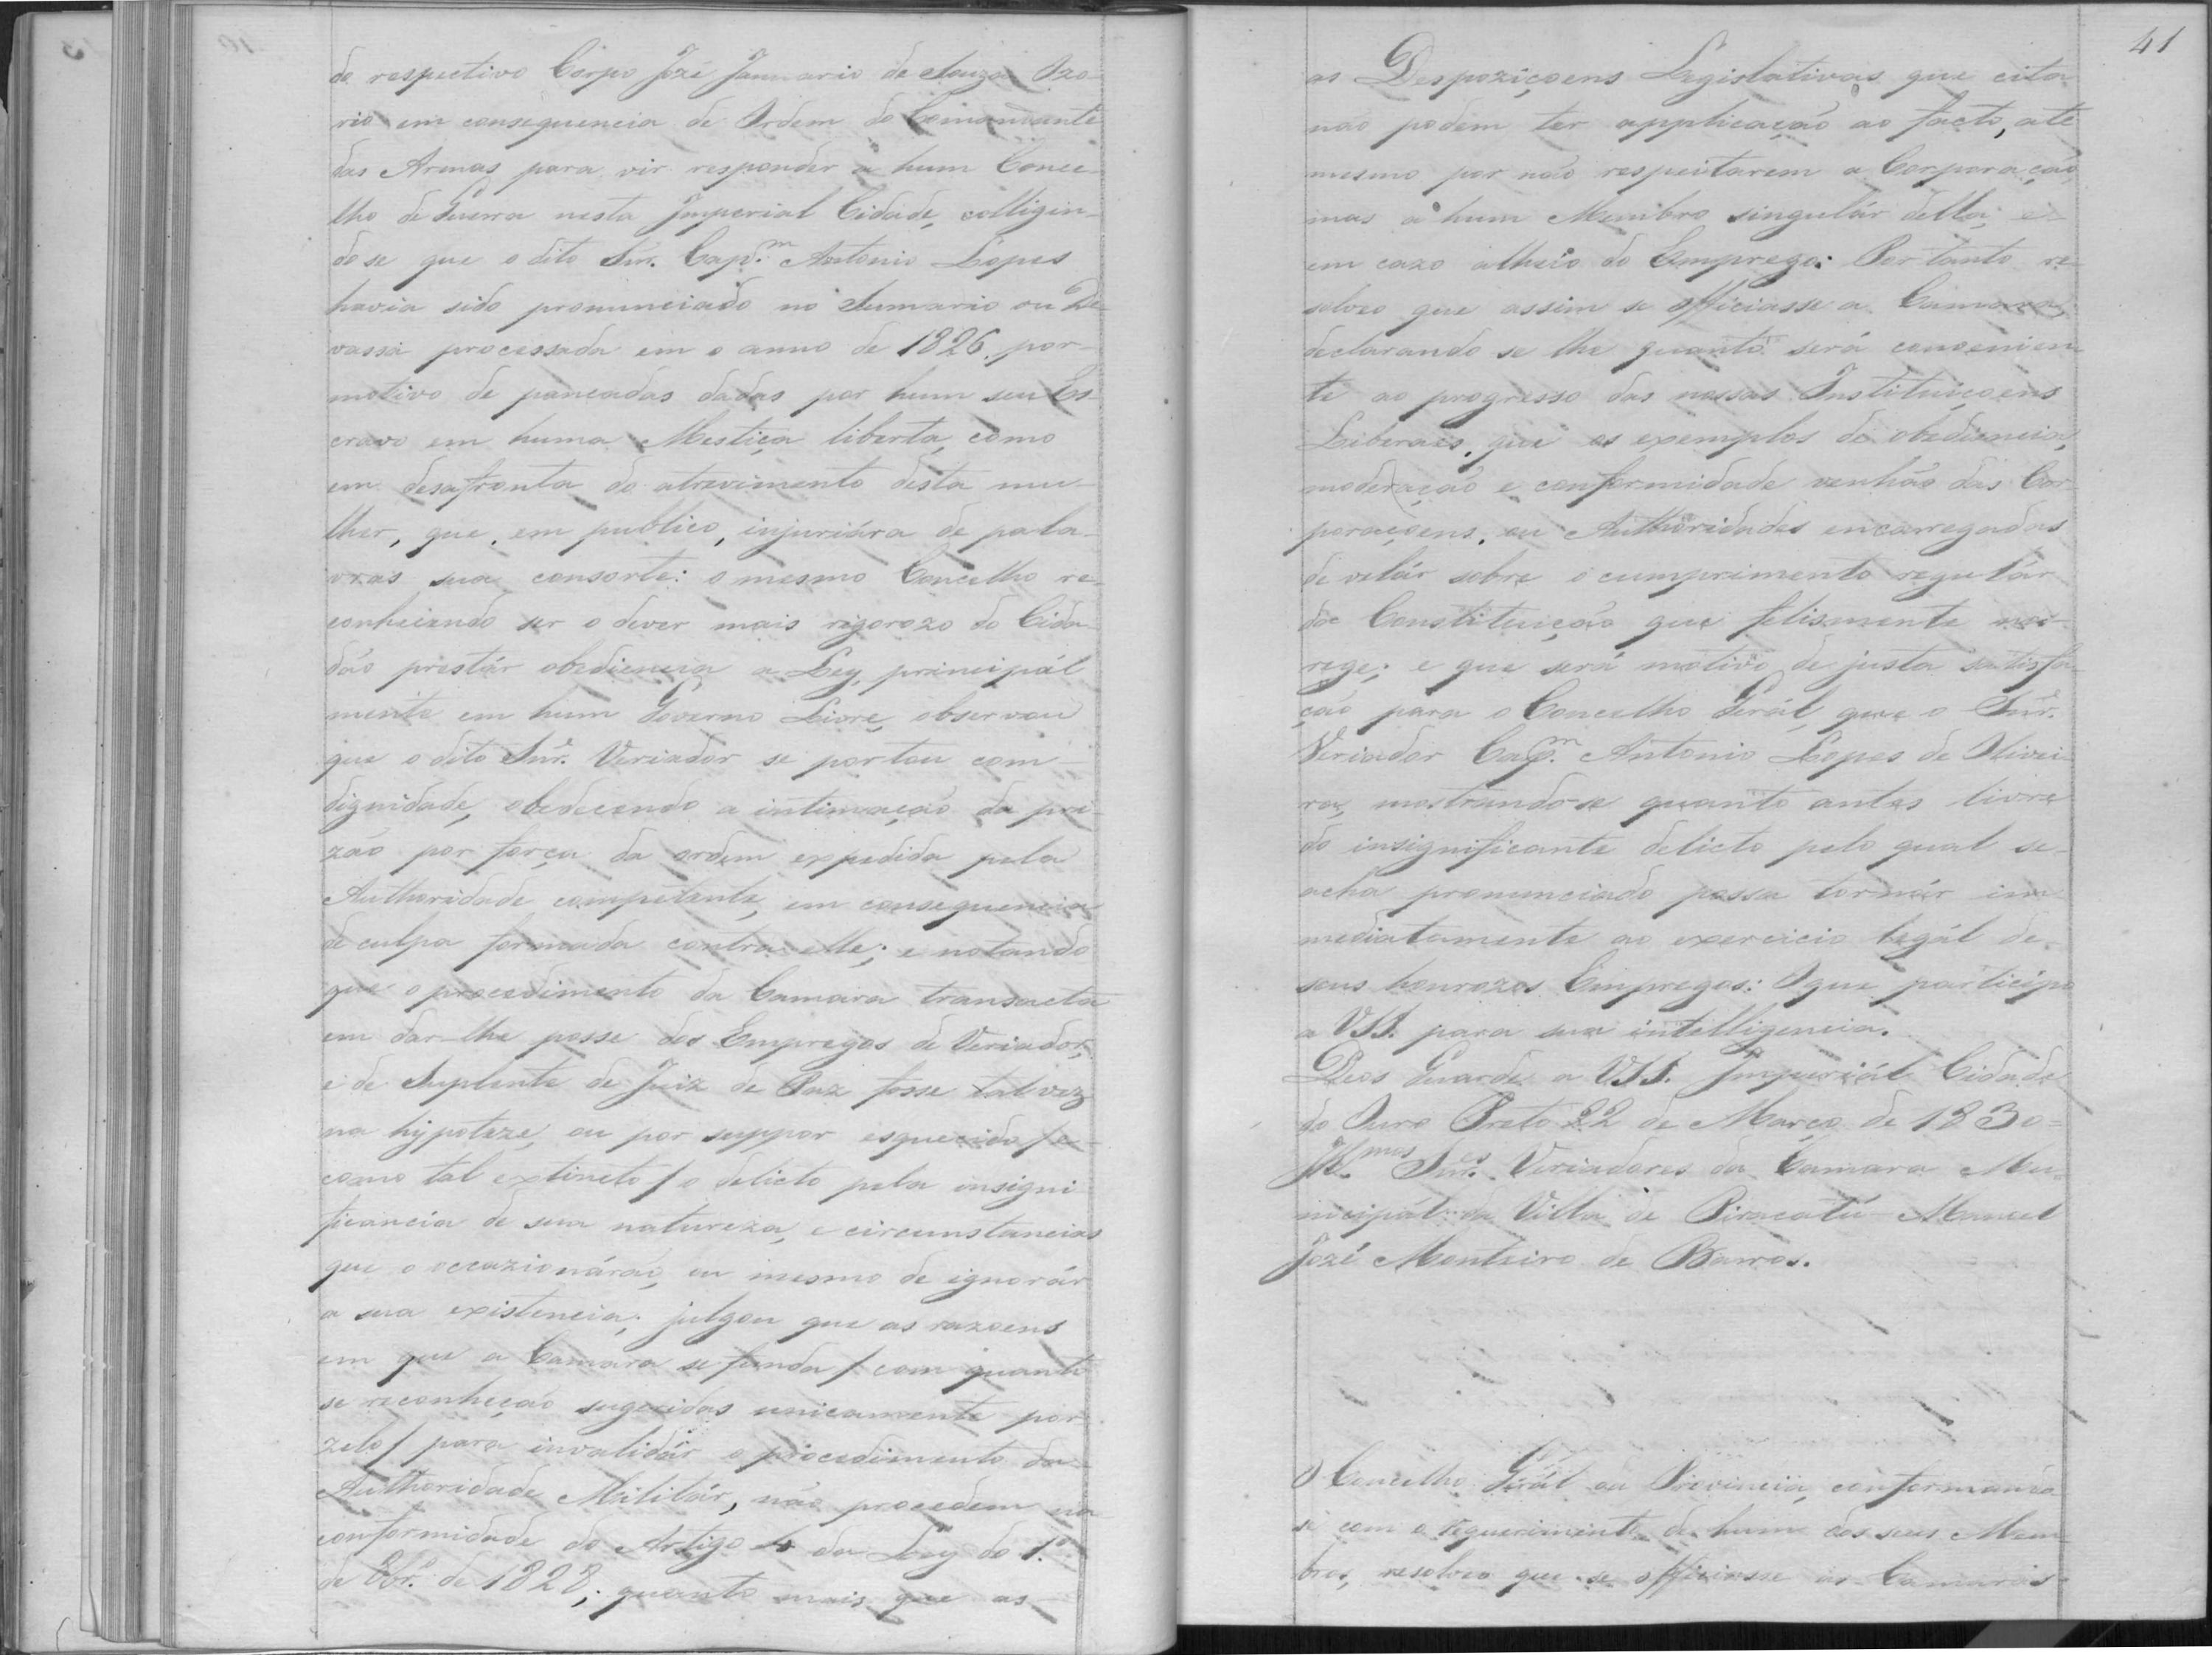 do respectivo Corpo Jozé Januario de Souza Ozo-
rio em consequencia de Ordem do Comandante
das Armas para vir responder a hum Conce-
lho de Guerra nesta Imperial Cidade, colligin-
do se que o dito Snr. Cap.m Antonio Lopes
havia sido pronunciado no Sumario ou De-
vassa processada em o anno de 1826, por
motivo de pancadas dadas por hum seu Es-
cravo em huma Mestiça liberta, como
em desafronta do atrevimento desta mu-
lher, que, em publico, injuriára de pala-
vras sua consorte: o mesmo Concelho re-
conhecendo ser o dever mais rigorozo do Cida-
dão prestár obediencia a Ley, principál
mente em hum Governo Livre, observou
que o dito Snr. Veriador se portou com
dignidade, obedecendo a intimação da pri-
zão por força da ordem expedida pela
Authoridade competente, em consequencia
de culpa formada contra elle; e notando
que o procedimento da Camara transacta
em dar-lhe posse dos Empregos de Veriador,
e de Suplente de Juiz de Paz fosse talvez
na hypoteze, ou por suppor esquecido / e
como tal extincto / o delicto pela insigni
ficancia de sua natureza, e circumstancias
que o occazionárão, ou mesmo de ignorár
a sua existencia; julgou que as razoens
em que a Camara se funda / com quanto
se reconheção sugeridas unicamente por
zelo / para invalidár o procedimento da
Authoridade Militár, não procedem na
conformidade do Artigo 4 da Ley do 1.º
de 8br.º de 1828; quanto mais que as
41
as Despoziçoens Legislativas que cita
não podem ter applicação ao facto, até
mesmo por não respeitarem a Corporação
mas a hum Membro singulár della, e
em cazo alheio do Emprego: Portanto re-
solveo que assim se officiasse a Camara,
declarando se lhe quanto será convenien-
te ao progresso das nossas Instituiçoens
Liberaes, que os exemplos de obediencia,
moderação e conformidade venhão das Cor-
poraçoens, ou Authoridades encarregadas
de velár sobre o cumprimento regulár
da Constituição que felismente nos
rege; e que será motivo de justa satisfa
ção para o Concelho Gerál, que o Snr.
Veriador Cap.m Antonio Lopes de Olivei-
ra, mostrando-se quanto antes livre
do insignificante delicto pelo qual se
acha pronunciado possa tornár im
mediatamente ao exercicio legál de
seus honrozos Empregos: O que participo
a VSS. para sua intelligencia.
Deos Guarde a VSS. Imperiál Cidade
do Ouro Preto 22 de Março de 1830=
Ill.mos Snr.es Veriadores da Camara Mu-
nicipál da Villa de Piracatú Manoel
Jozé Monteiro de Barros.
O Concelho Gerál da Provincia, conformando
se com o requerimento de hum dos seus Mem
bros, resolveo que se officiasse as Camaras